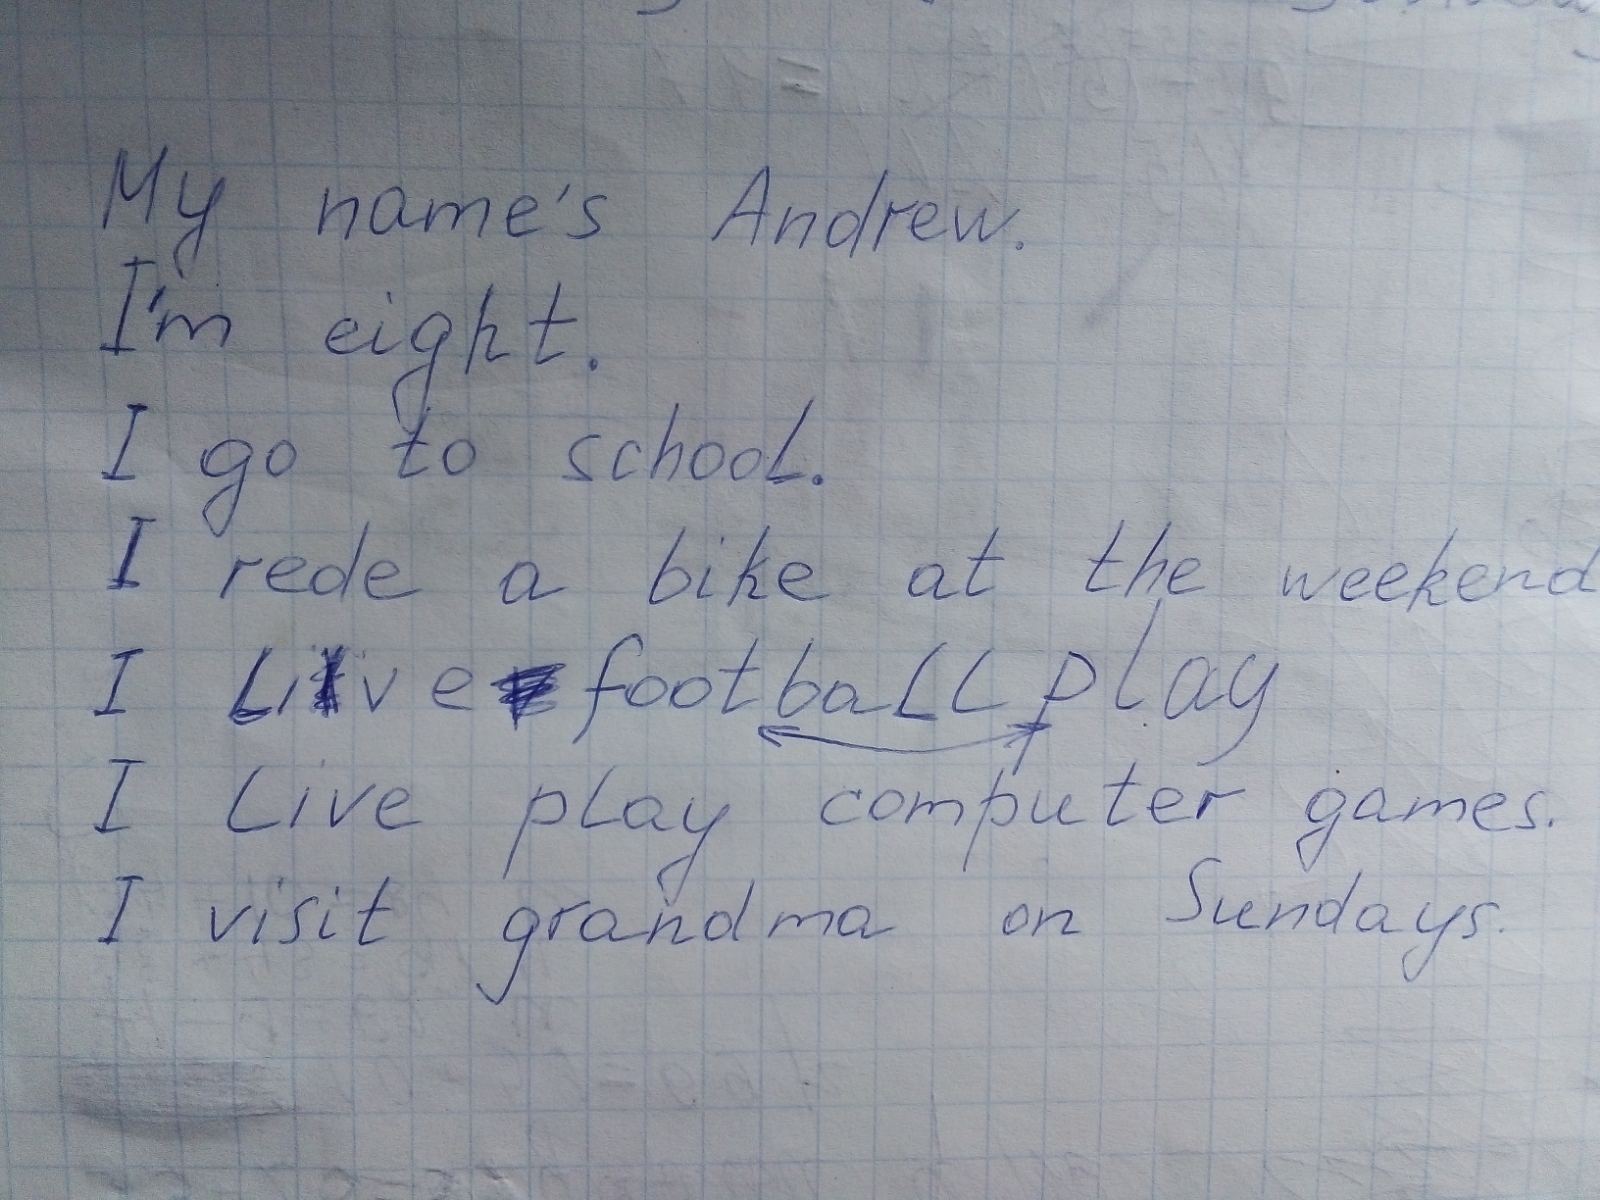 My name's Andrew.
I'm eight.
I go to school.
I rede a bike at the weekend
I Live football play
I Live play computer games.
I visit grandma on Sundays.